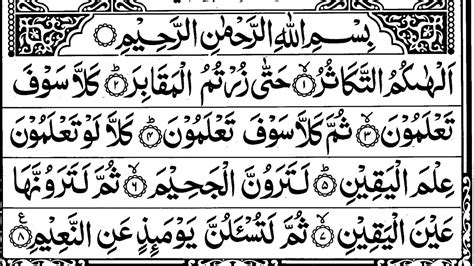 بِسْمِ اللهِ الرَّحْمٰنِ الرَّحِيْمِ
اَلْهٰىكُمُ التَّكَاثُرُ ۙ﴿۱﴾ حَتّٰى زُرْتُمُ الْمَقَابِرَ ؕ﴿۲﴾ كَلَّا سَوْفَ
تَعْلَمُوْنَ ۙ﴿۳﴾ ثُمَّ كَلَّا سَوْفَ تَعْلَمُوْنَ ؕ﴿۴﴾ كَلَّا لَوْ تَعْلَمُوْنَ
عِلْمَ الْيَقِيْنِ ؕ﴿۵﴾ لَتَرَوُنَّ الْجَحِيْمَ ۙ﴿۶﴾ ثُمَّ لَتَرَوُنَّهَا
عَيْنَ الْيَقِيْنِ ۙ﴿۷﴾ ثُمَّ لَتُسْـَٔلُنَّ يَوْمَئِذٍ عَنِ النَّعِيْمِ ﴿۸﴾